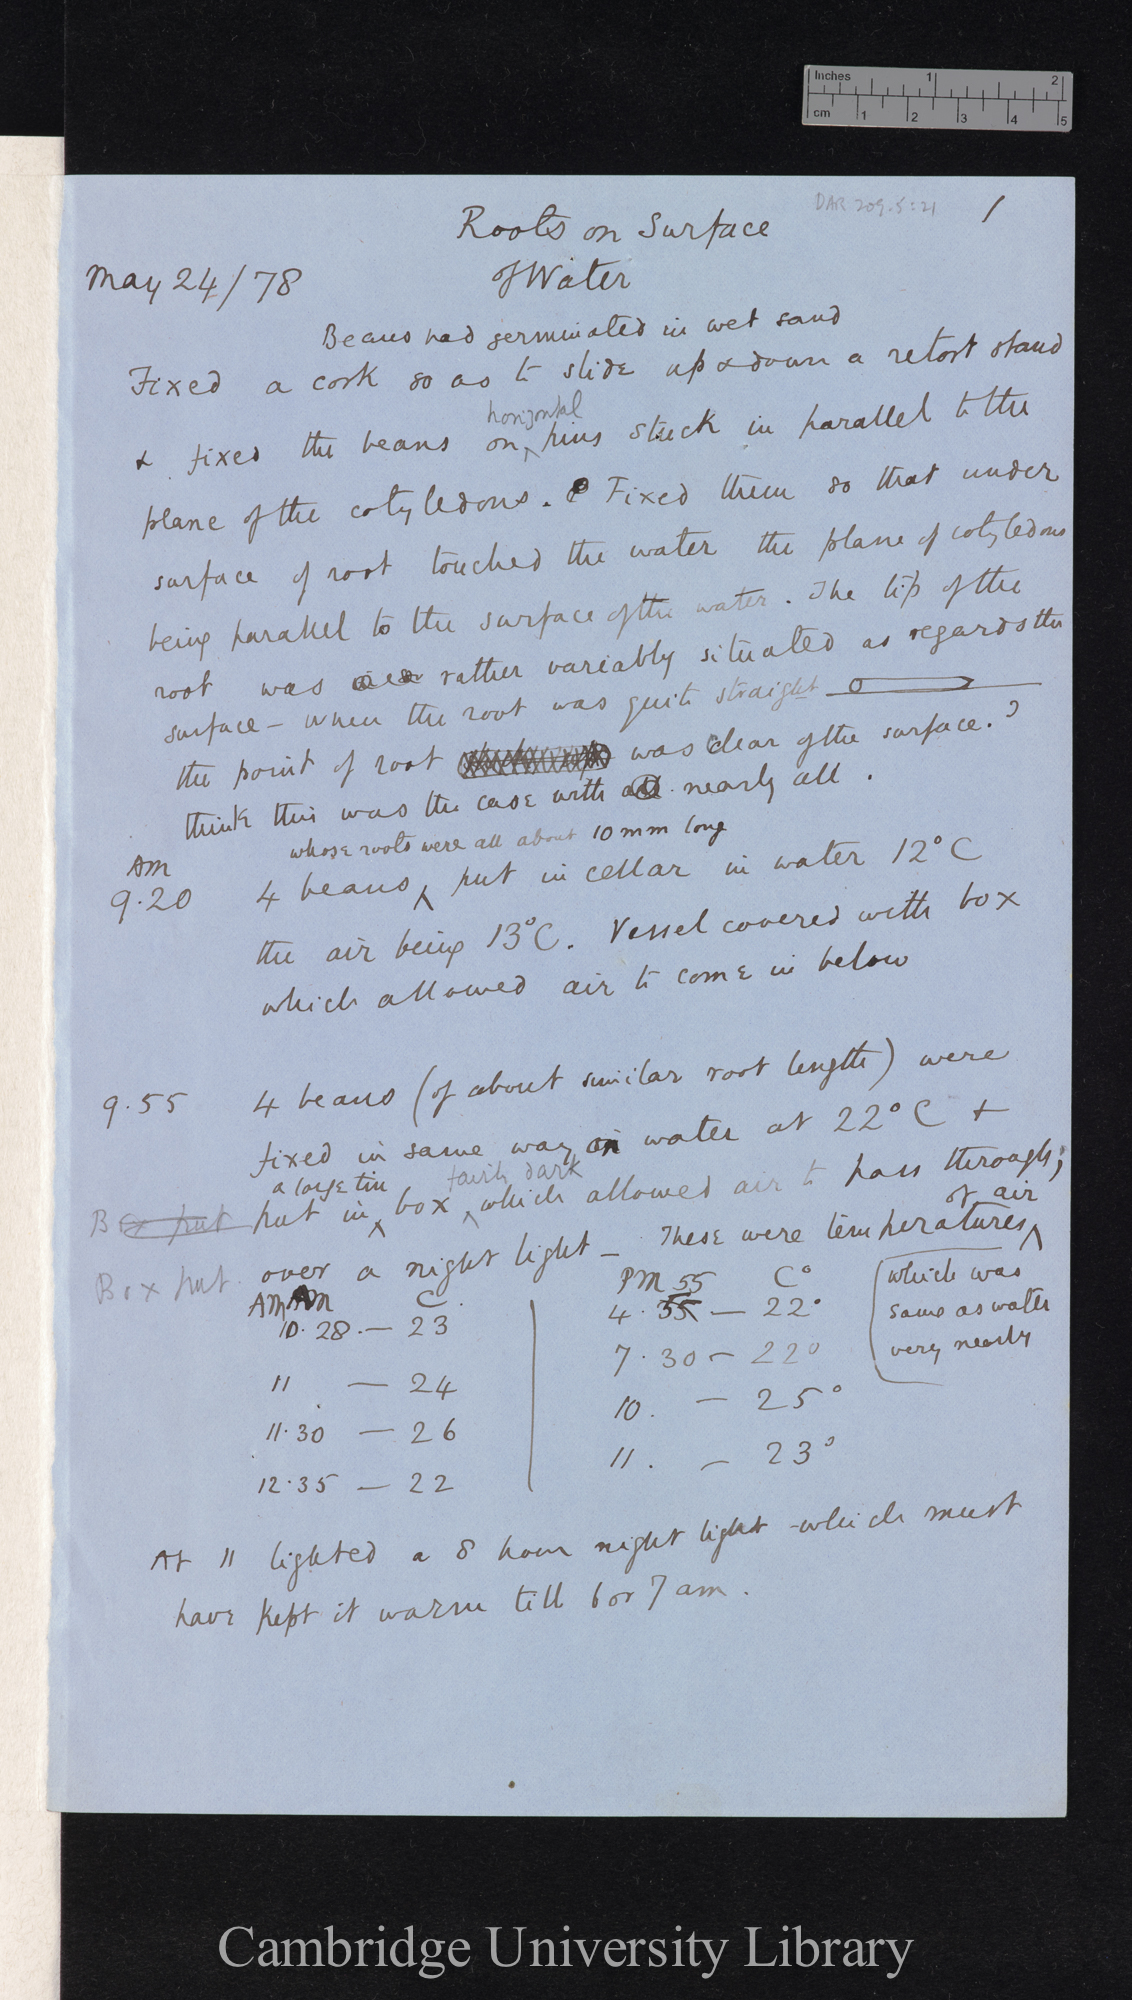 Inches 1 2
cm 1 2 3 4 5
DAR 209.5:21
1
Roots on Surface
of Water
May 24/78
Beans had germinated in wet sand
Fixed a cork so as to slide up & down a retort stand
horizontal
& fixed the beans on pins stuck in parallel to the
plane of the cotyledons. Fixed them so that under
surface of root touched the water the plane of cotyledons
being parallel to the surface of the water. The tip of the
root was rather variably situated as regards the
surface – when the root was quite straight
the point of root was clear of the surface. I
think this was the case with nearly all.
whose roots were all about 10 mm long
AM
9.20 4 beans put in cellar in water 12°C
the air being 13°C. Vessel covered with box
which allowed air to come in below
9.55 4 beans (of about similar root length) were
fixed in same way on water at 22°C &
a large tin fairly dark
Box put put in box which allowed air to pass through;
of air
Box put over a night light – These were temperatures
which was
same as water
very nearly
AM AM C.
10.28. — 23
11 — 24
11.30 — 26
12.35 — 22
PM 55 C°
4.35 — 22°
7.30 — 22°
10. — 25°
11. — 23°
At 11 lighted a 8 hour night light which must
have kept it warm till 6 or 7 am.
Cambridge University Library